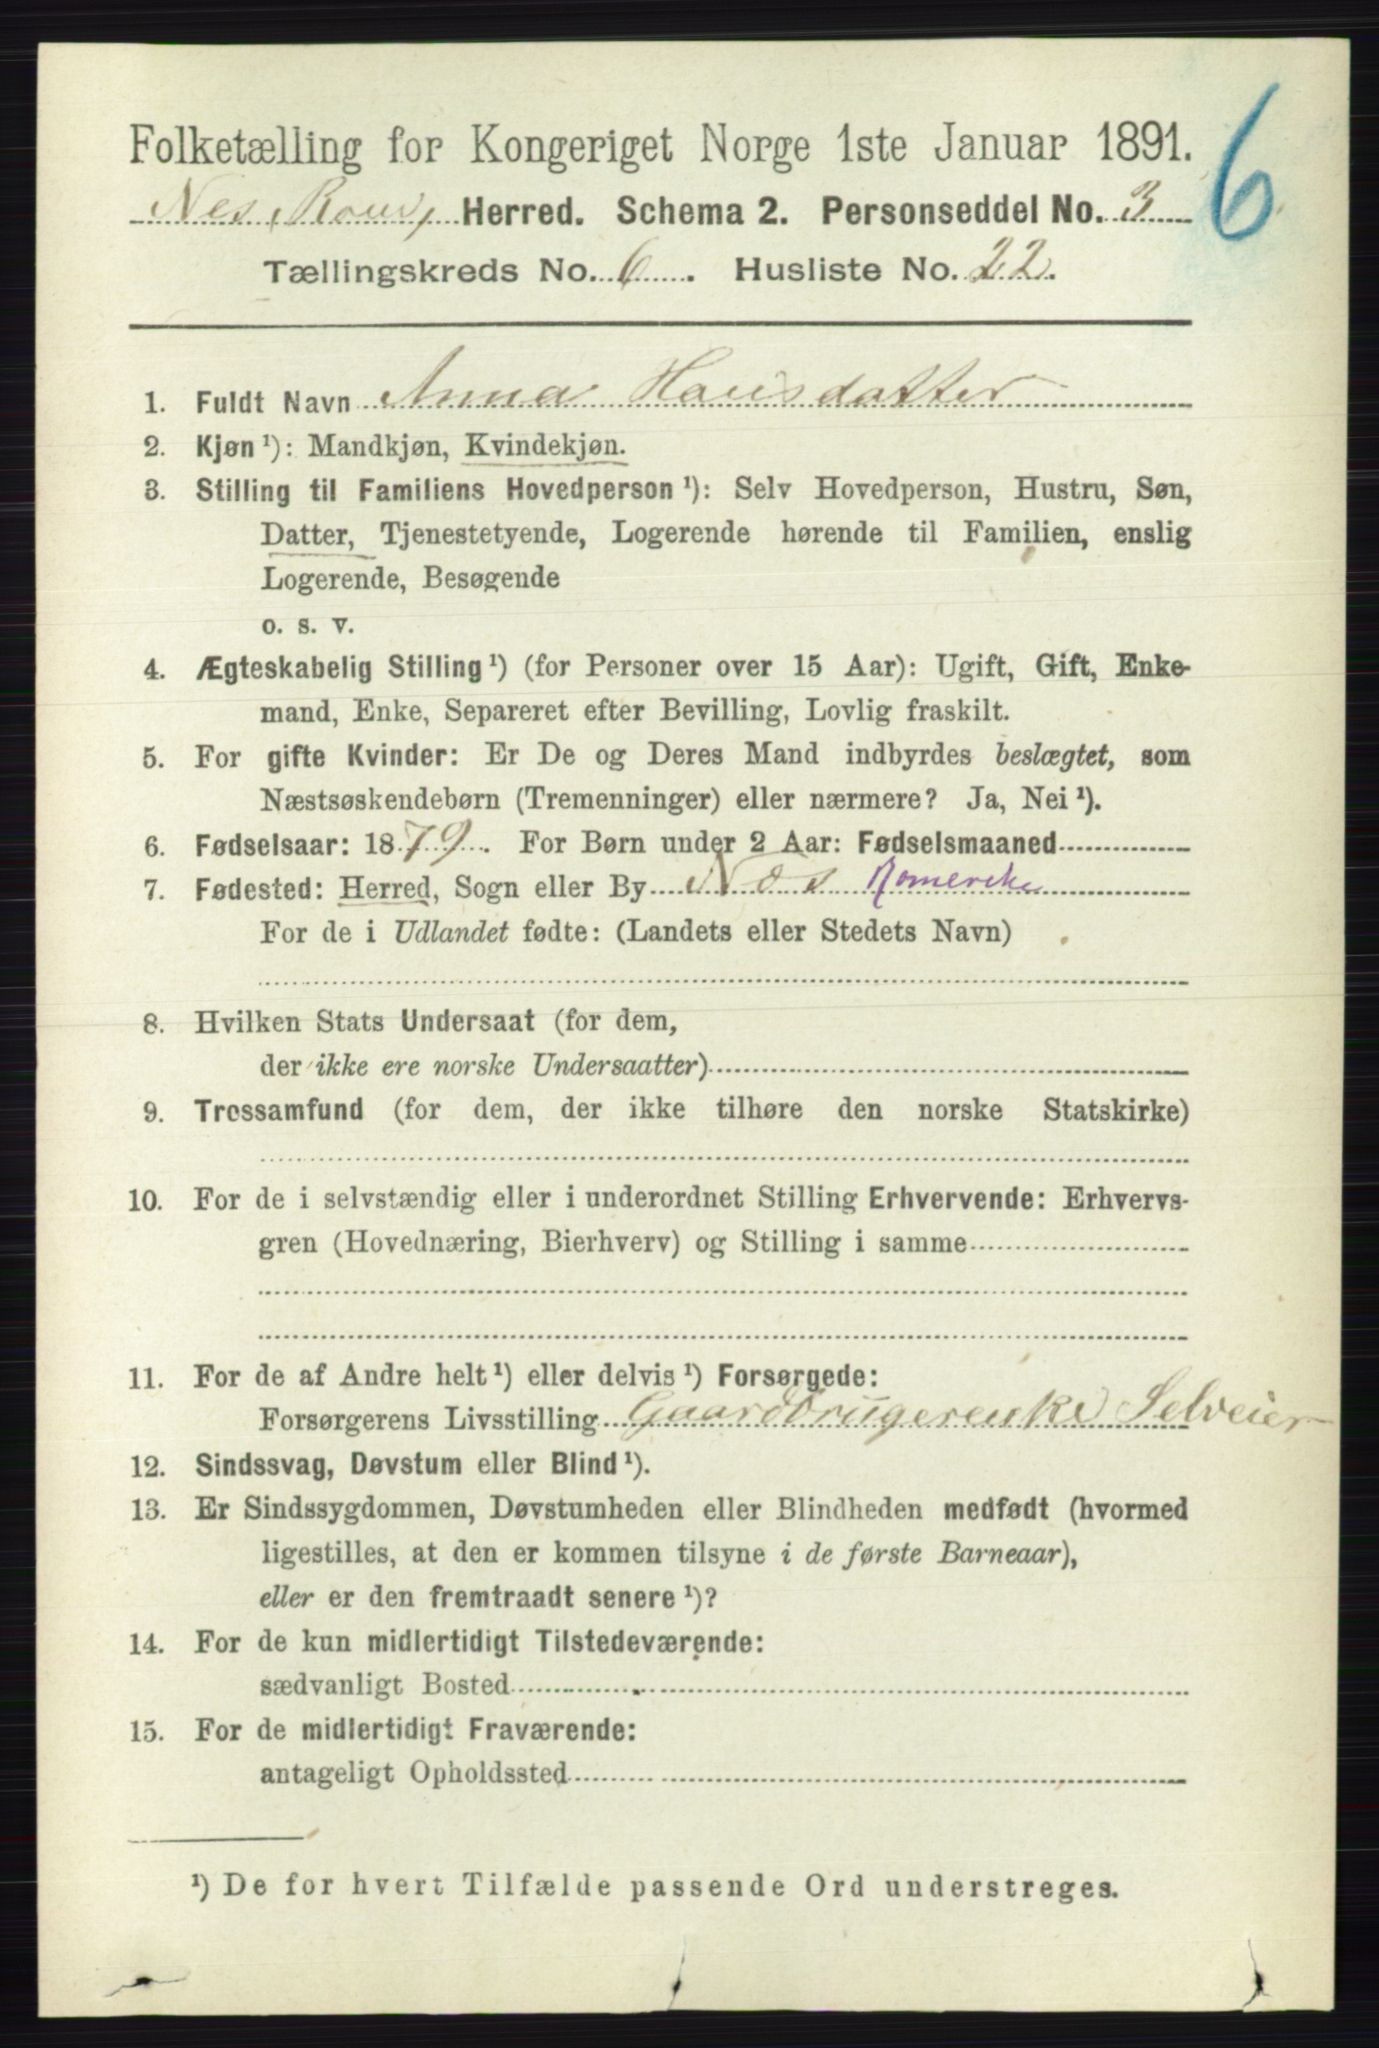 Folketælling for Kongeriget Norge 1ste Januar 1891.
6
Nes, Rom, Herred. Schema 2. Personseddel No. 3
Tællingskreds No. 6. Husliste No. 22.
1. Fuldt Navn Anna Hansdatter
2. Kjøn ¹): Mandkjøn, Kvindekjøn.
3. Stilling til Familiens Hovedperson ¹): Selv Hovedperson, Hustru, Søn,
Datter, Tjenestetyende, Logerende hørende til Familien, enslig
Logerende, Besøgende
o. s. v.
4. Ægteskabelig Stilling ¹) (for Personer over 15 Aar): Ugift, Gift, Enke-
mand, Enke, Separeret efter Bevilling, Lovlig fraskilt.
5. For gifte Kvinder: Er De og Deres Mand indbyrdes beslægtet, som
Næstsøskendebørn (Tremenninger) eller nærmere? Ja, Nei ¹).
6. Fødselsaar: 1879. For Børn under 2 Aar: Fødselsmaaned
7. Fødested: Herred, Sogn eller By Nes Romerike
For de i Udlandet fødte: (Landets eller Stedets Navn)
8. Hvilken Stats Undersaat (for dem,
der ikke ere norske Undersaatter)
9. Trossamfund (for dem, der ikke tilhøre den norske Statskirke)
10. For de i selvstændig eller i underordnet Stilling Erhvervende: Erhvervs-
gren (Hovednæring, Bierhverv) og Stilling i samme
11. For de af Andre helt ¹) eller delvis ¹) Forsørgede:
Forsørgerens Livsstilling Gaardbrugerenke Selveier
12. Sindssvag, Døvstum eller Blind ¹).
13. Er Sindssygdommen, Døvstumheden eller Blindheden medfødt (hvormed
ligestilles, at den er kommen tilsyne i de første Barneaar),
eller er den fremtraadt senere ¹)?
14. For de kun midlertidigt Tilstedeværende:
sædvanligt Bosted
15. For de midlertidigt Fraværende:
antageligt Opholdssted
¹) De for hvert Tilfælde passende Ord understreges.